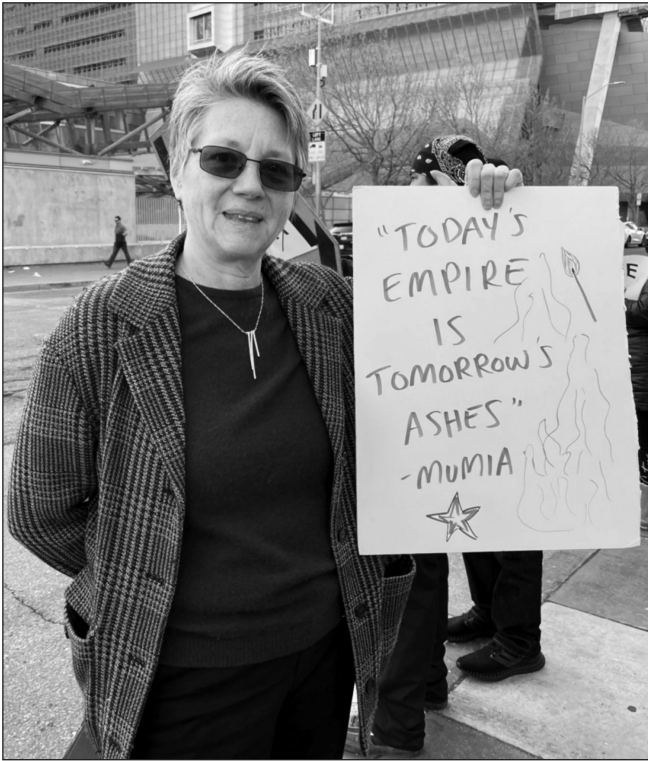 "TODAY'S
EMPIRE
IS
TOMORROW'S
ASHES"
-MUMIA
E